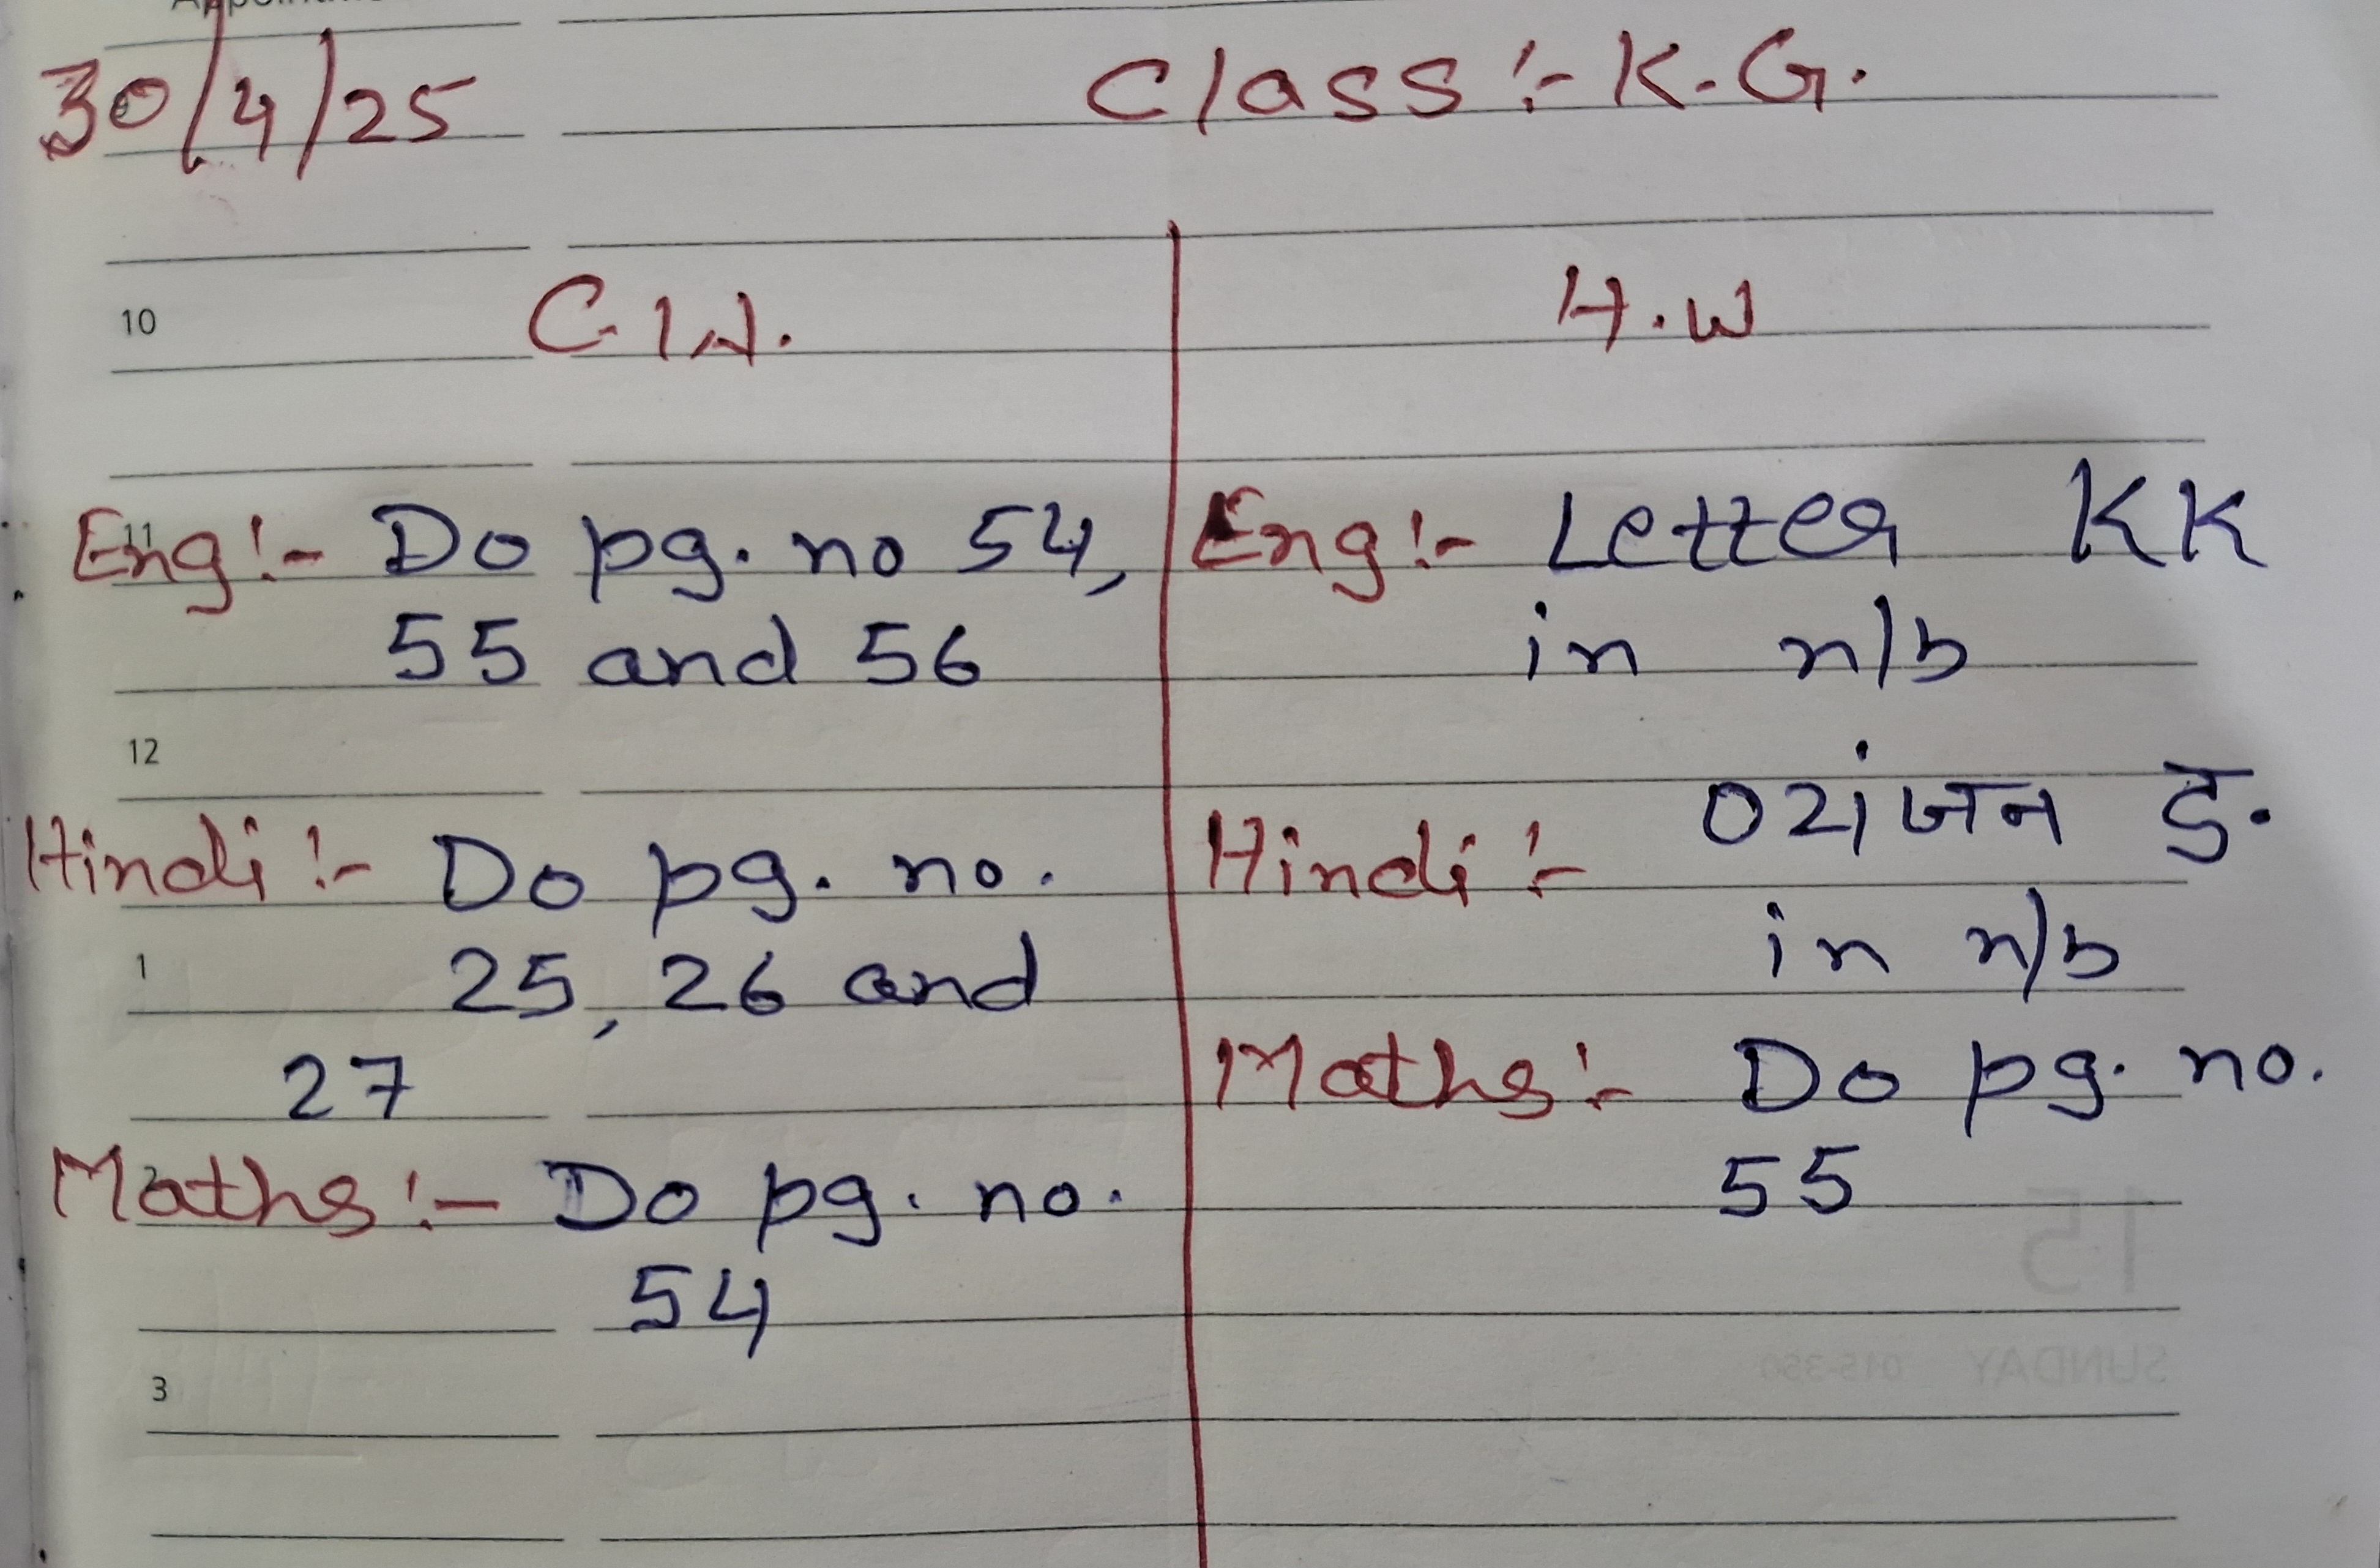 30/4/25 Class :- K.G.
C.W.
H.W
10
11
Eng :- Do pg. no 54,
55 and 56
12
Hindi :- Do pg. no.
1
25, 26 and
27
Maths :- Do pg. no.
54
3
Eng :- Letter KK
in n/b
Hindi :- व्यंजन ङ
in n/b
Maths :- Do pg. no.
55
15
SUNDAY 015-350